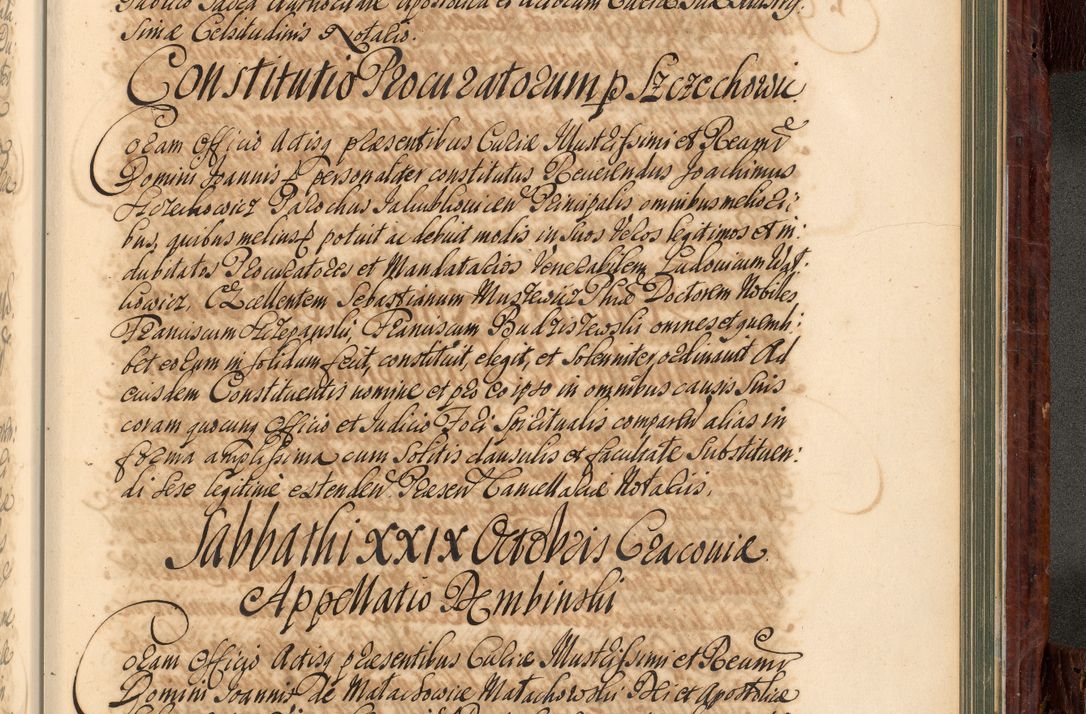 simæ Celsitudinis Notario.
Constitutio Procuratorum p Szczechowic
Coram Officio Actisq præsentibus Curiæ Illustrissimi et Reamr
Domini Joannis p personalster constitutus Reverendus Joachimus
Szczechowicz Parochus Jakublovicen Principalis omnibus meliori:
bus, quibus melius p potuit ac debuit modis in suos veros legitimos et in:
dubitatos Procuratores et Mandatarios Venerabilem Ludovicum Wit:
kowicz, Excellentem Sebastianum Muszewicz Phiæ Doctorem Nobiles
Franciscum Szczepanski, Franciscum Budziszewski omnes et quemli:
bet eorum in solidum fecit, constituit, elegit, et solenniter ordinavit Ad
eiusdem Constituentis nomine et pro eo ipso in omnibus causis suis
coram quocunq Officio et Judicio Fori Spiritualis comparen alias in
forma amplissima cum solitis clausulis et facultate Substituen:
di sese legitime extenden Præsen Cancellariæ Notariis.
Sabbathi XXIX Octobris Cracoviæ
Appellatio Dembinski
Coram Officio Actisq præsentibus Curiæ Illustrissimi et Reamr
Domini Joannis de Małachowice Małachowski Dei et Apostolicæ